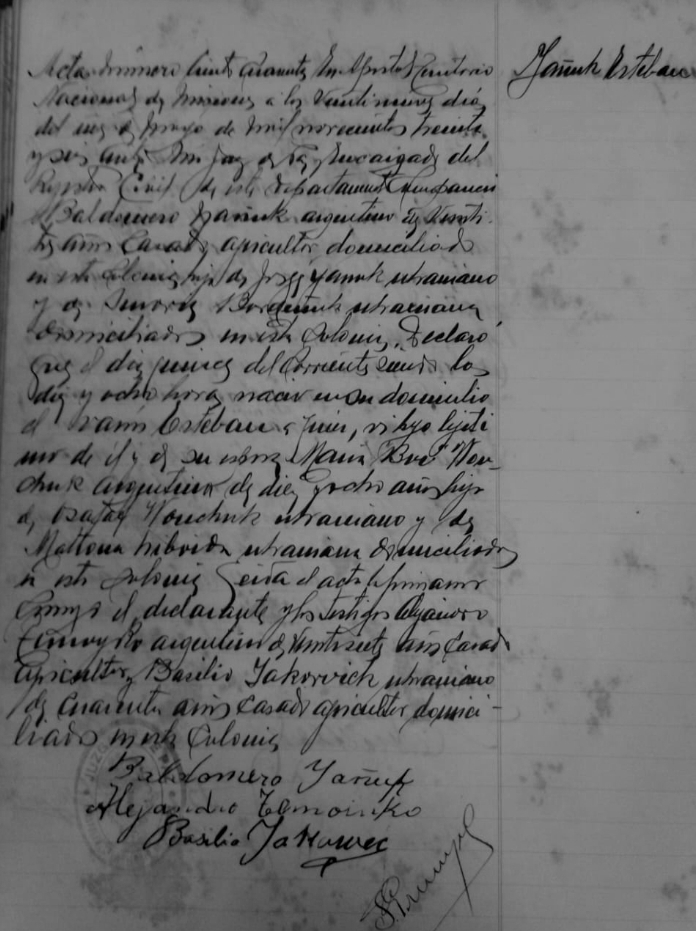 Yañuk Esteban
Acta número ciento cuarenta En Apóstoles Territorio
Nacional de Misiones a los Veintinueve días
del mes de Mayo de mil novecientos treinta
y seis ante Mi Juez de Paz y Encargado del
Registro Civil de este departamento Compareció
Baldomero Yañuk argentino de Veinti-
tres años Casado, agricultor domiciliado
en esta Colonia, hijo de José Yanuk ukraniano
y de ukraniana
domiciliados en esta Colonia, Declaró
Que el día quince del Corriente siendo las
diez y ocho horas nació en su domicilio
el Varón Esteban hijo legíti
mo de él y de su esposa María Wou-
chuk Argentina de diez y ocho años hija
de Wouchuk ukraniano y de
ukraniana domiciliados
en esta Colonia Leida el acta la firmaron
Conmigo el declarante y los testigos Alejandro
argentino de Veintisiete años Casado
Agricultor y Basilio Jakovich ukraniano
de Cuarenta años Casado agricultor domici-
liados en esta Colonia
Baldomero Yañuk
Alejandro
Basilio
JUZG